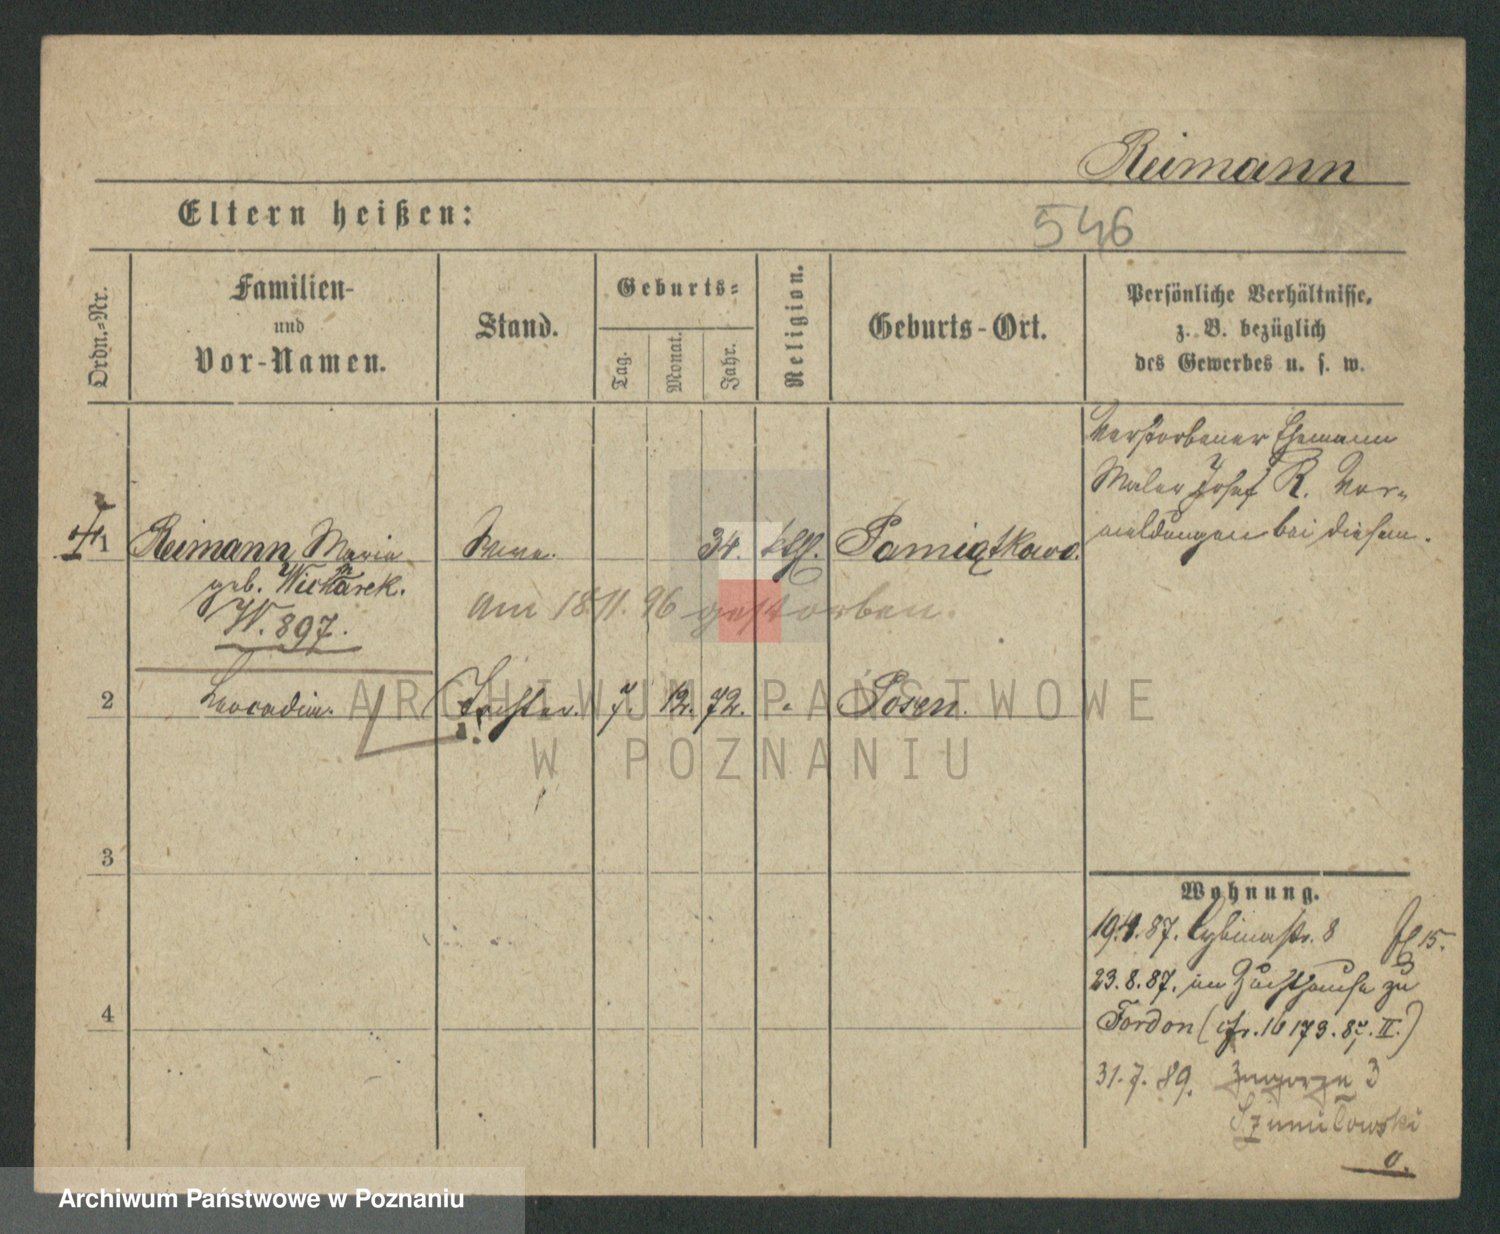 Reimann
Eltern heißen:
546
Ordn.-Nr.
Familien-
und
Vor-Namen.
Stand.
Geburts-
Tag.
Monat.
Jahr.
Religion.
Geburts-Ort.
Persönliche Verhältnisse,
z. B. bezüglich
des Gewerbes u. s. w.
Verstorbener Ehemann
Maler Josef R. Vor-
meldungen bei diesem.
1 Reimann, Maria 34. ktl. Pamiątkowo.
geb.
W. 897.
am 18.11.96 gestorben.
2 Leocadia. Tochter. 7. 12. 72. " Posen.
3
4
Wohnung.
19.4.87. Cybinastr. 8 15.
23.8.87. im Zuchthause zu
Fordon (cfr. 16173.87.II.)
31.7.89. Zagorze 3
Szumilowski
ARCHIWUM PAŃSTWOWE
W POZNANIU
Archiwum Państwowe w Poznaniu